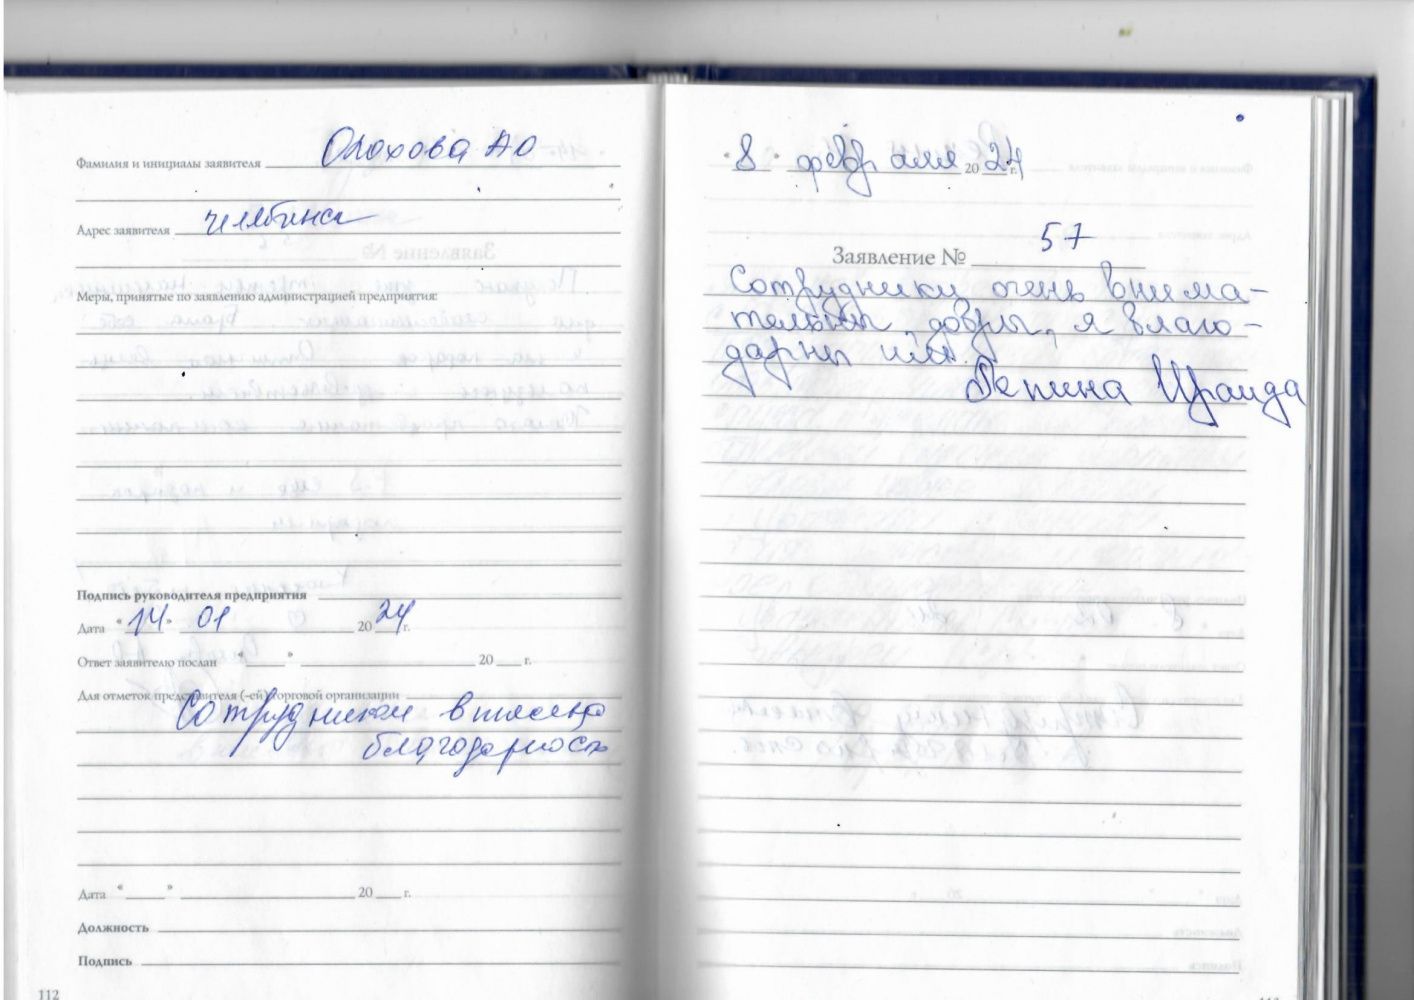 Фамилия и инициалы заявителя Олохова АО
Адрес заявителя Челябинск
Меры, принятые по заявлению администрацией предприятия:
Подпись руководителя предприятия
Дата "14" 01 2024 г.
Ответ заявителю послан " " 20 г.
Для отметок представителя (-ей) торговой организации
Сотрудникам вынесена
благодарность
Дата " " 20 г.
Должность
Подпись
112
"8" февраля 2024 г.
Заявление № 57
Сотрудники очень внима-
тельны, добры, я благо-
дарны им.
Репина Ираида